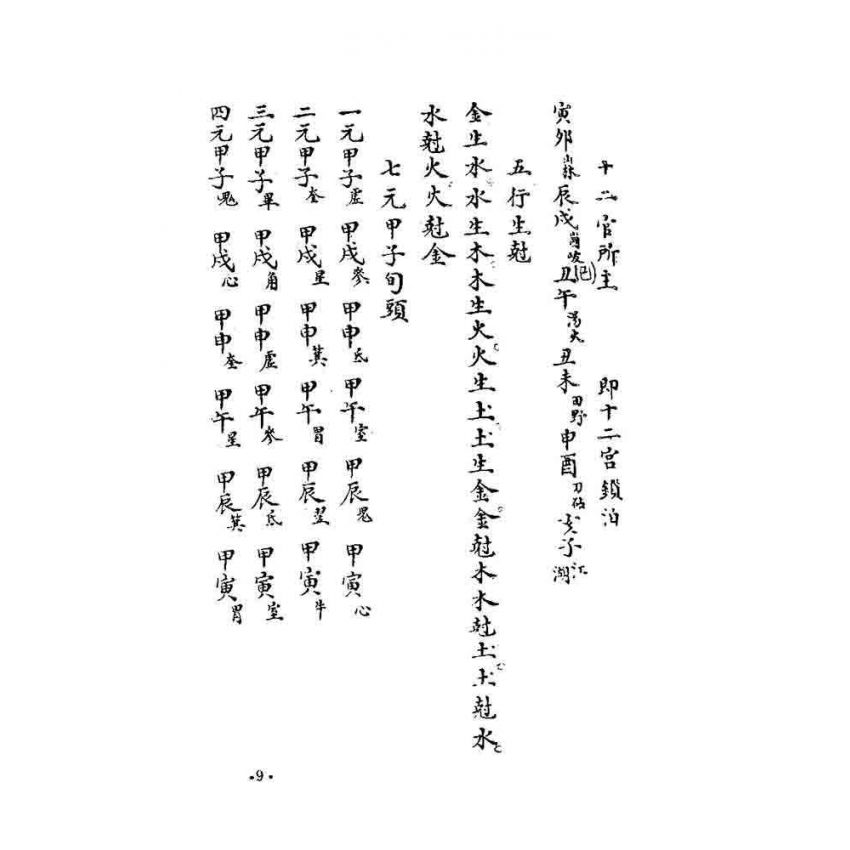 十二官所主 即十二宮鎖泊
寅卯山林辰戌崗崚丑(巳)午窑大丑未田野申酉刀砧亥子江湖
五行生尅
金生水水生木木生火火生土土生金金尅木木尅土土尅水
水尅火火尅金
七元甲子旬頭
一元甲子虛 甲戌參 甲申氐 甲午室 甲辰鬼 甲寅心
二元甲子奎 甲戌星 甲申箕 甲午胃 甲辰翌 甲寅牛
三元甲子畢 甲戌角 甲申虛 甲午參 甲辰氐 甲寅室
四元甲子鬼 甲戌心 甲申奎 甲午星 甲辰箕 甲寅胃
·9·